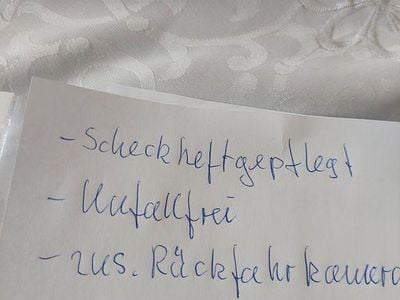 - Scheckheftgepflegt
- Unfallfrei
- zus. Rückfahrkamera